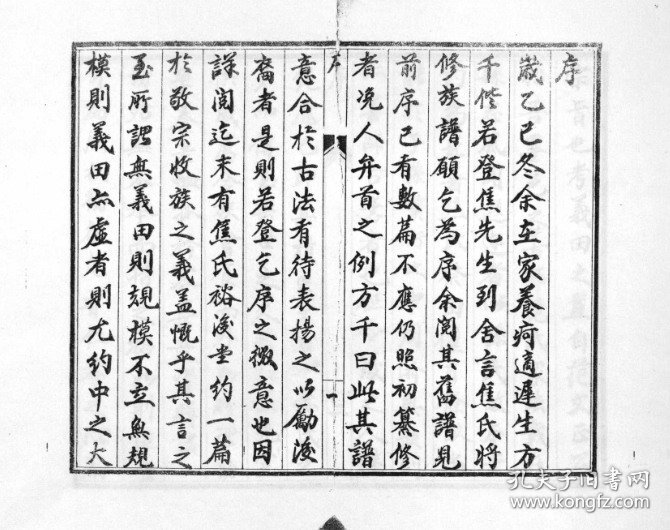 序
歲乙巳冬余在家養疴適遲生方
千偕若登焦先生到舍言焦氏將
修族譜願乞為序余閱其舊譜見
前序已有數篇不應仍照初纂修
者浼人弁首之例方千曰此其譜
序
一
意合於古法有待表揚之以勵後
裔者是則若登乞序之微意也因
詳閱迄末有焦氏裕後堂約一篇
於敬宗收族之義盖慨乎其言之
至所謂無義田則規模不立無規
模則義田亦虛者則尤約中之大
孔夫子旧书网
www.kongfz.com